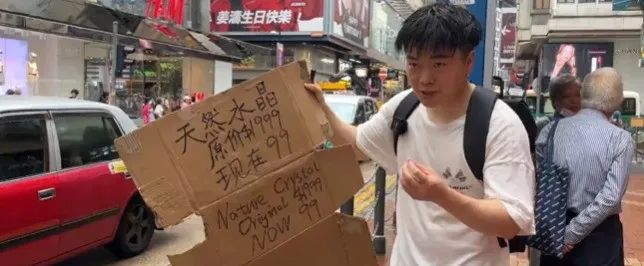 姜濤生日快樂!
天然水晶
原价$1999
现在99
Native Crystal
Original $1999
NOW 99